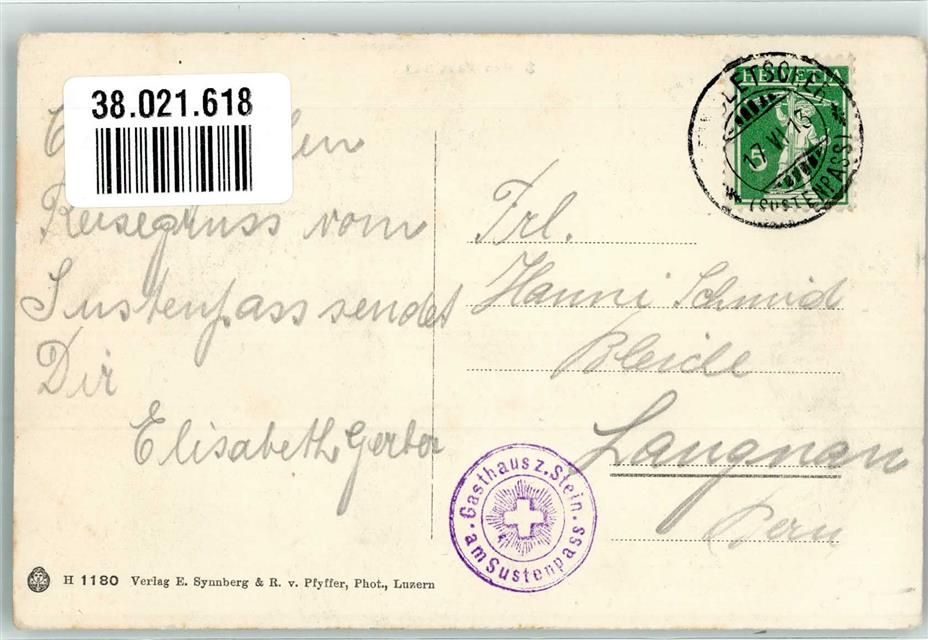 38.021.618
Reisegruss vom
Sustenpass sendet
Dir
Elisabeth Gerber
HELVETIA
5
17 VI 13
(SUSTENPASS)
Frl.
Hanni Schmid
Bleiche
Langnau
Bern
Gasthaus z. Stein.
am Sustenpass
H 1180 Verlag E. Synnberg & R. v. Pfyffer, Phot., Luzern